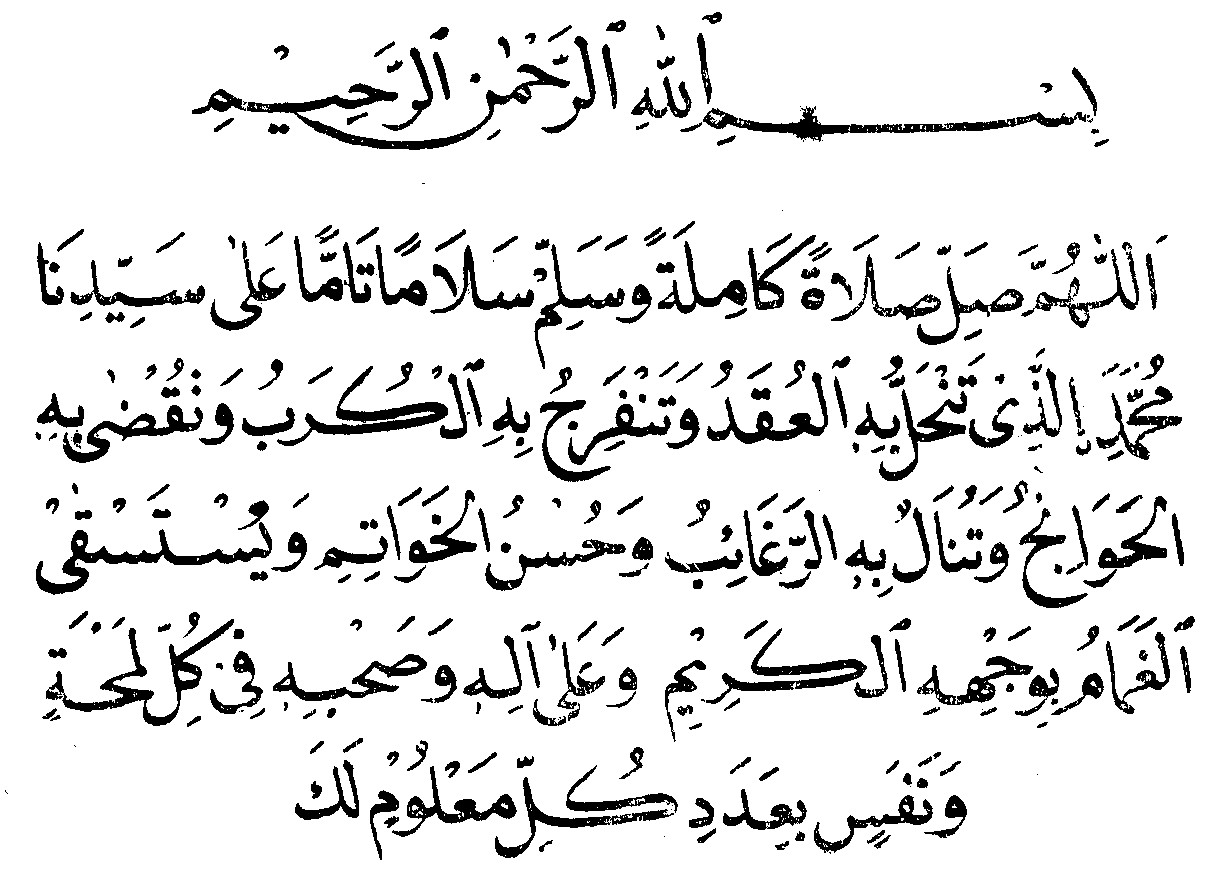 بِسْمِ ٱللّٰهِ ٱلرَّحْمٰنِ ٱلرَّحِيْمِ
اَللّٰهُمَّ صَلِّ صَلَاةً كَامِلَةً وَسَلِّمْ سَلَامًا تَامًّا عَلٰى سَيِّدِنَا
مُحَمَّدِ ِالَّذِيْ تَنْحَلُّ بِهِ ٱلْعُقَدُ وَتَنْفَرِجُ بِهِ ٱلْكُرَبُ وَتُقْضٰى بِهِ
الْحَوَائِجُ وَتُنَالُ بِهِ الرَّغَائِبُ وَحُسْنُ الْخَوَاتِمِ وَيُسْتَسْقٰى
ٱلْغَمَامُ بِوَجْهِهِ ٱلْكَرِيْمِ وَعَلٰى آلِهِ وَصَحْبِهِ فِيْ كُلِّ لَمْحَةٍ
وَنَفَسٍ بِعَدَدِ كُلِّ مَعْلُوْمٍ لَكَ